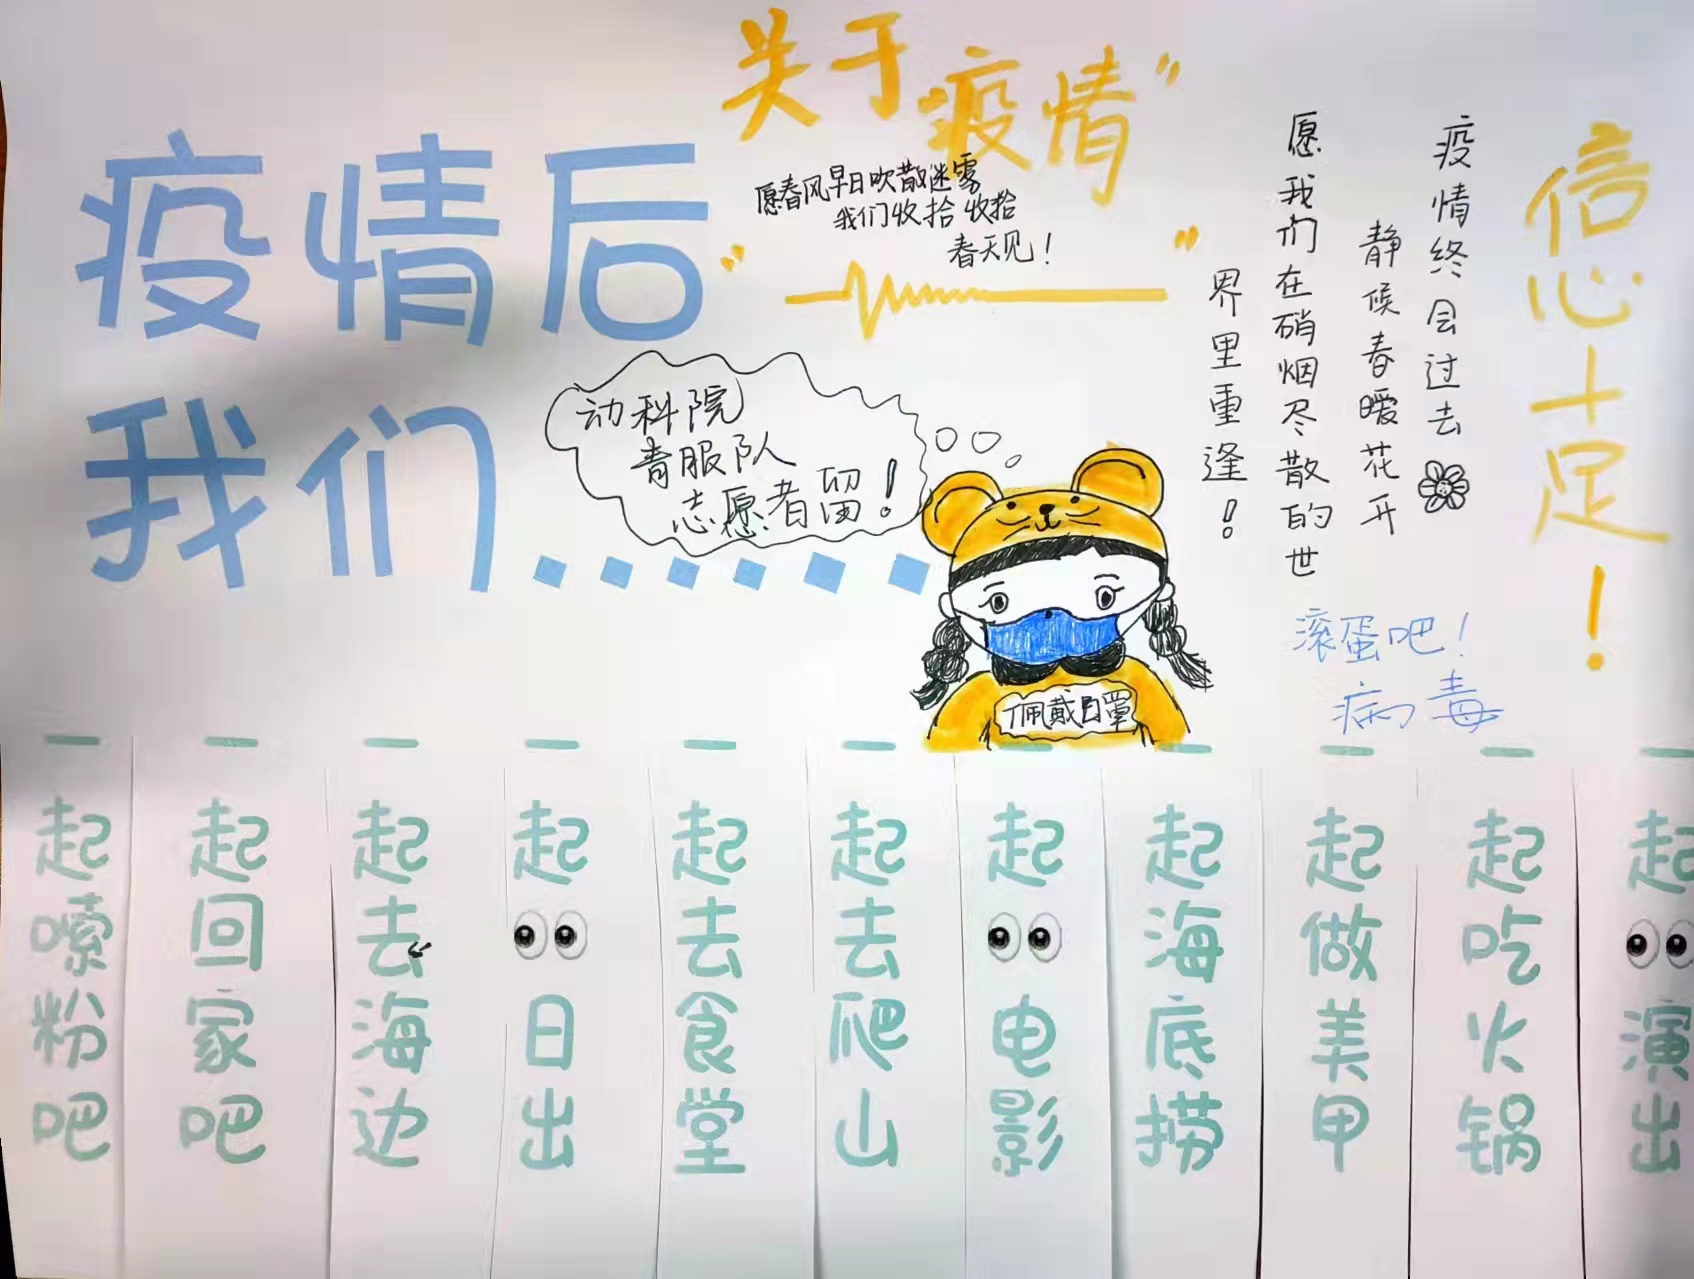 关于疫情
疫情后
我们......
愿春风早日吹散迷雾
我们收拾收拾
春天见！
动科院
青服队
志愿者留！
佩戴口罩
疫情终会过去
静候春暖花开
愿我们在硝烟尽散的世
界里重逢！
信心十足！
滚蛋吧！
病毒
一起嗦粉吧
一起回家吧
一起去海边
一起👀日出
一起去食堂
一起去爬山
一起👀电影
一起海底捞
一起做美甲
一起吃火锅
一起👀演出